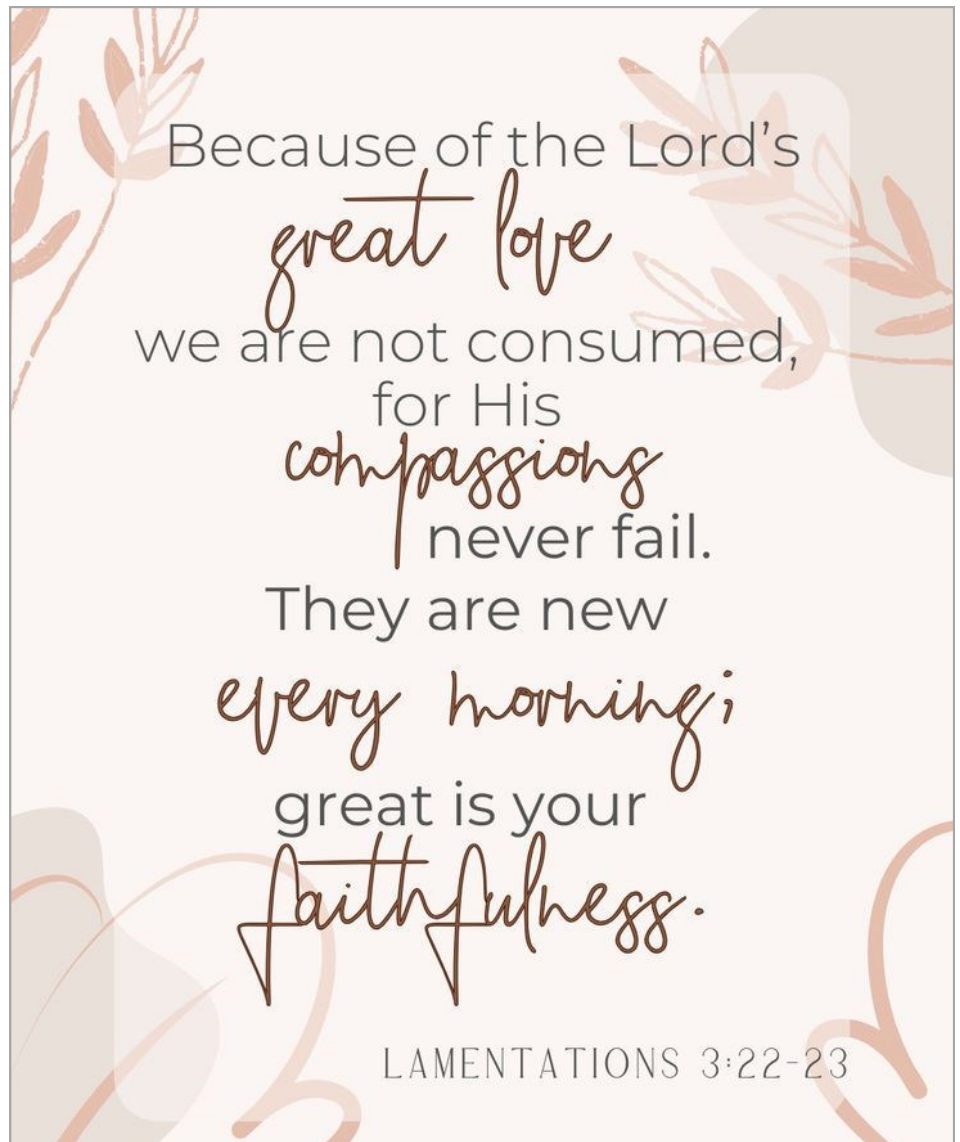 Because of the Lord’s
great love
we are not consumed,
for His
compassions
never fail.
They are new
every morning;
great is your
faithfulness.
LAMENTATIONS 3:22-23